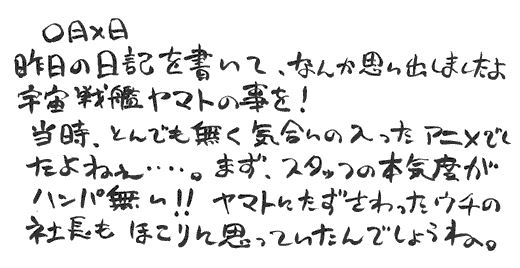 〇月×日
昨日の日記を書いて、なんか思い出しましたよ
宇宙戦艦ヤマトの事を！
当時、とんでも無く気合いの入ったアニメでし
たよねぇ‥‥。まず、スタッフの本気度が
ハンパ無い!! ヤマトにたずさわったウチの
社長も ほこりに思っていたんでしょうね。